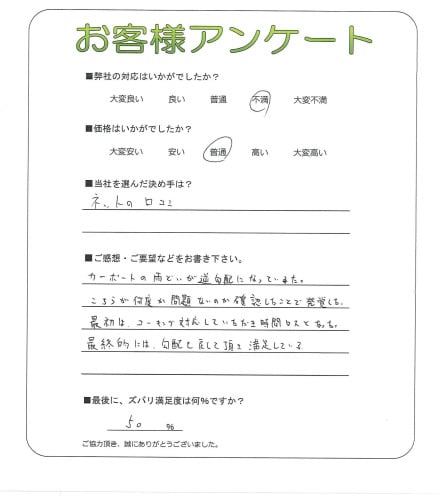 お客様アンケート
■弊社の対応はいかがでしたか？
大変良い 良い 普通 不満 大変不満
■価格はいかがでしたか？
大変安い 安い 普通 高い 大変高い
■当社を選んだ決め手は？
ネットの口コミ
■ご感想・ご要望などをお書き下さい。
カーポートの雨どいが逆勾配になっていた。
こちらが何度か問題ないのか確認したことで発覚した。
最初は、コーキング対応していただき時間ロスとなった。
最終的には、勾配も直して頂き満足している
■最後に、ズバリ満足度は何%ですか？
50 %
ご協力頂き、誠にありがとうございました。